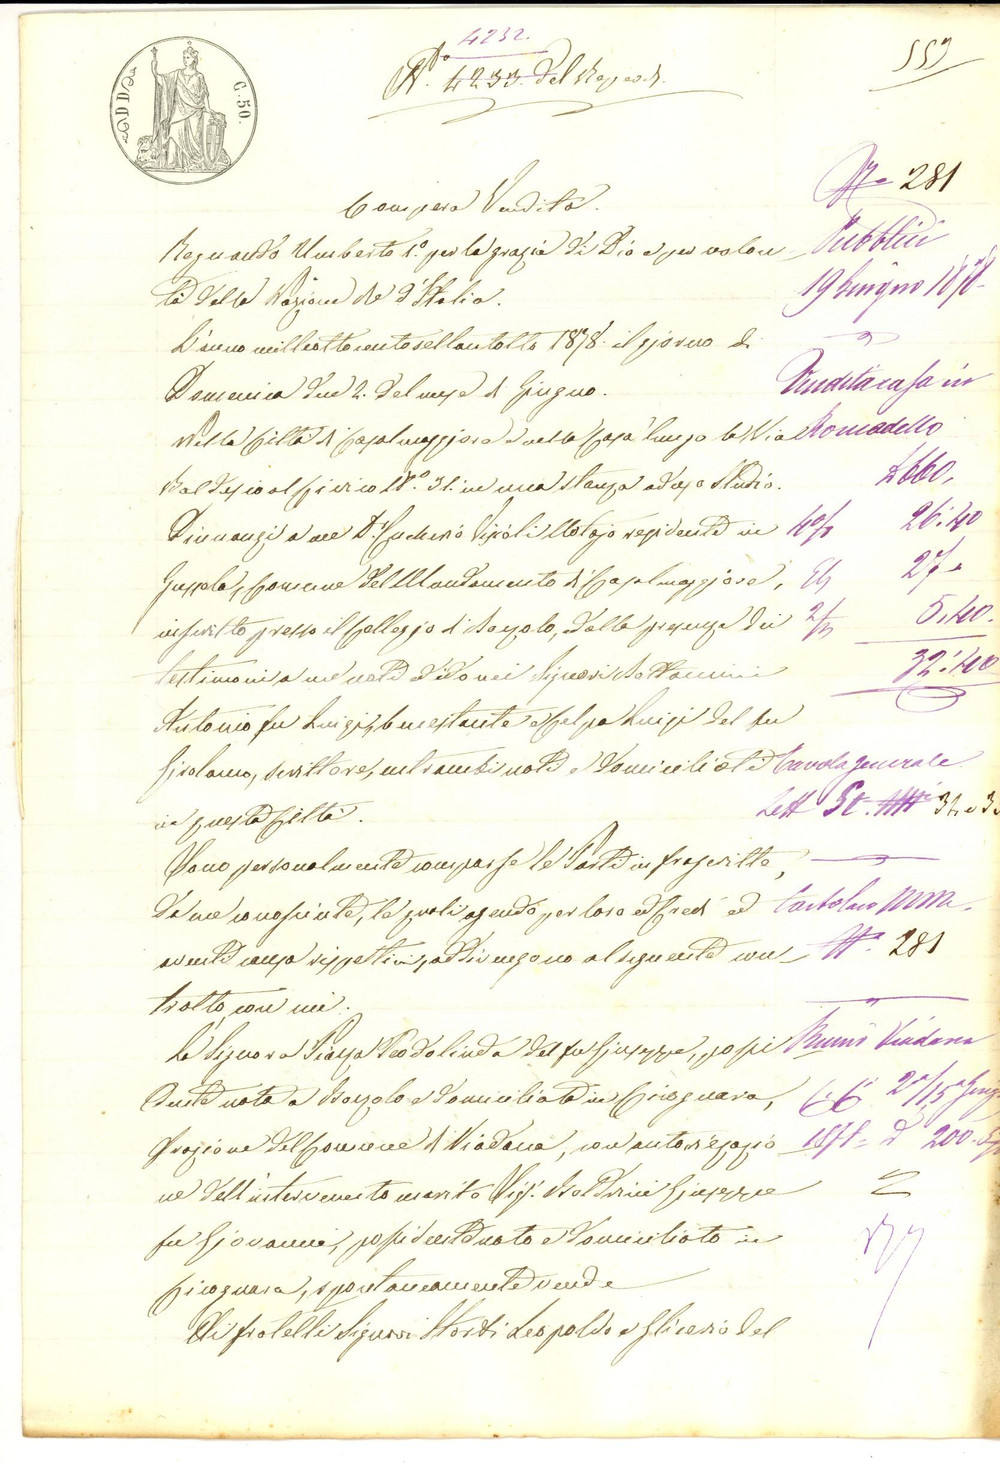 4232.
N.° 4233. del Repert.
C. 50.
N.° 281
Compera Vendita.
Regnando Umberto 1.° per la grazia di Dio e per volon-
tà della Nazione Re d'Italia.
L'anno mille ottocento settantotto 1878. il giorno di
Domenica due 2. del mese di Giugno.
Nella Città di Casalmaggiore e nella Casa lungo la Via
Baldesio al Civico N.° 31. in una stanza ad uso Studio.
Dinnanzi a me D.r Notajo residente in
Gussola, Comune del Mandamento di Casalmaggiore,
inscritto presso il Collegio di Bozzolo, dalla presenza dei
testimoni a me noti ed idonei Signori
Antonio fu Luigi, benestante e Luigi del fu
Girolamo, scrittore, entrambi noti e domiciliati
in questa Città.
Sono personalmente comparse le Parti infrascritte,
da me conosciute, le quali agendo per loro ed Eredi ed
aventi causa rispettivi, addivengono al seguente con-
tratto, con cui.
La Signora Piazza Teodolinda del fu Giuseppe, possi
dente nata a Bozzolo e domiciliata in Cicognara,
frazione del Comune di Viadana, con autorizzazio
ne dell'intervenuto marito Sig.r Baldrini Giuseppe
fu Giovanni, possidente nato e domiciliato in
Cicognara, spontaneamente vende
Ai fratelli Signori Storti Leopoldo e Glicerio del
Pubblici
19 Giugno 1878
Vendita casa in
Romadello
£ 660.
26.40
27
5.40.
32.40
Tavola generale
Lett St. 34 e
N.° 281
Viadana
1878
200